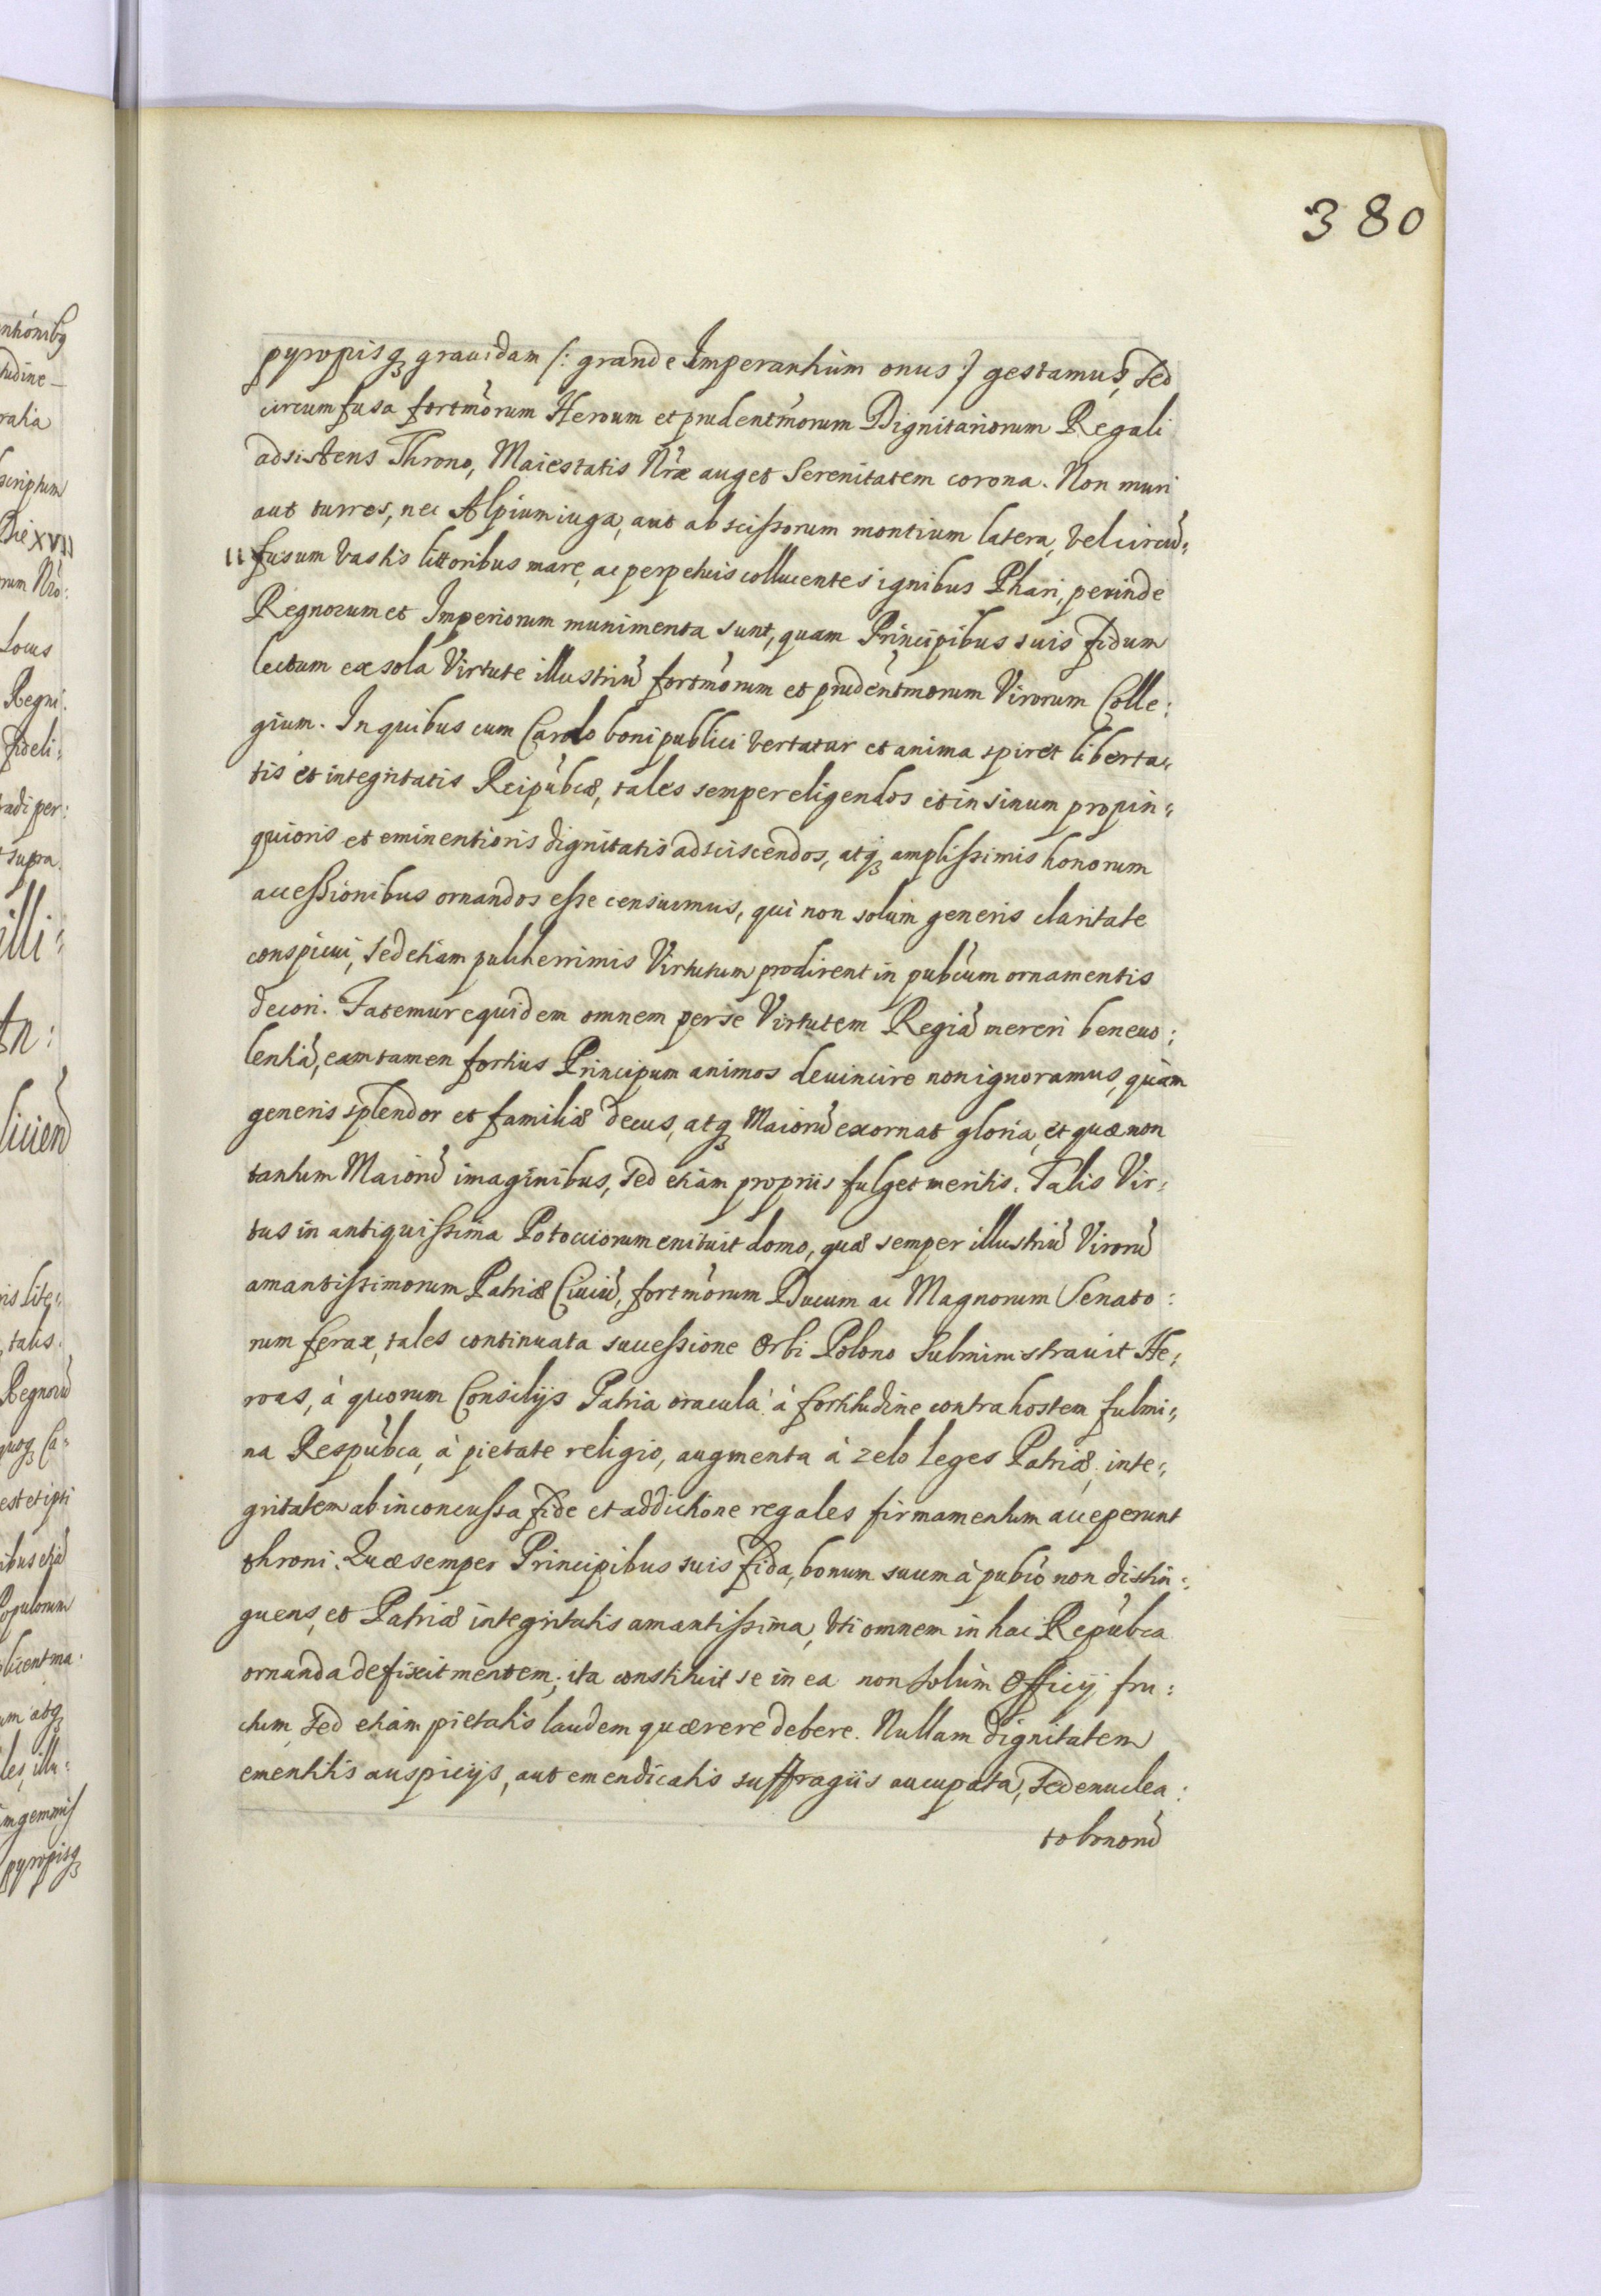 380
pyropisq₃ grauidam /: grande Imperantium onus :/ gestamus, sed
circumfusa fortm̀orum Heroum et prudentm̀orum Dignitariorum Regali
adsistens Throno, Maiestatis Nr̀æ auget Serenitatem corona. Non muri
aut turres, nec Alpium iuga, aut abscissorum montium latera, vel circũ„
„fusum vastis littoribus mare, ac perpetuis collucentes ignibus Phari, perinde
Regnorum et Imperiorum munimenta sunt, quam Principibus suis fidum
lectum ex sola Virtute illustriũ fortm̀orum et prudentm̀orum Virorum Colle:
gium. In quibus cum Cardo boni publici vertatur et anima spiret liberta„
tis et integritatis Reipùbcæ, tales semper eligendos et in sinum propin„
quioris et eminentioris dignitatis adsciscendos, atq₃ amplissimis honorum
accessionibus ornandos esse censuimus, qui non solùm generis claritate
conspicui, sed etiam pulcherrimis Virtutum prodirent in pubc̀um ornamentis
decori. Fatemur equidem omnem per se Virtutem Regiã mereri beneuo:
lentiã, eam tamen fortius Principum animos deuincire non ignoramus, quàm
generis splendor et familiæ decus, atq₃ Maiorũ exornat gloria, et quæ non
tantum Maiorũ imaginibus, sed etiam propriis fulget meritis. Talis Vir„
tus in antiquissima Potocciorum enituit domo, quæ semper illustriũ Virorũ
amantissimorum Patriæ Ciuiũ, fortm̀orum Ducum ac Magnorum Senato:
rum ferax, tales continuata successione Orbi Polono Subministrauit He„
roas, à quorum Consilijs Patria oracula: à fortitudine contra hostem fulmi„
na Respùbca, à pietate religio, augmenta à zelo leges Patriæ, inte„
gritatem ab inconcussa fide et addictione regales firmamentum acceperunt
throni. Quæ semper Principibus suis fida, bonum suum à pubc̀o non distin„
guens, et Patriæ integritatis amantissima, vti omnem in hac Repùbca
ornanda defixit mentem; ita constituit se in ea non solùm Officij fru:
ctum, sed etiam pietatis laudem quærere debere. Nullam dignitatem
ementitis auspicijs, aut emendicatis suffragiis aucupata, sed enuclea:
to bonorũ